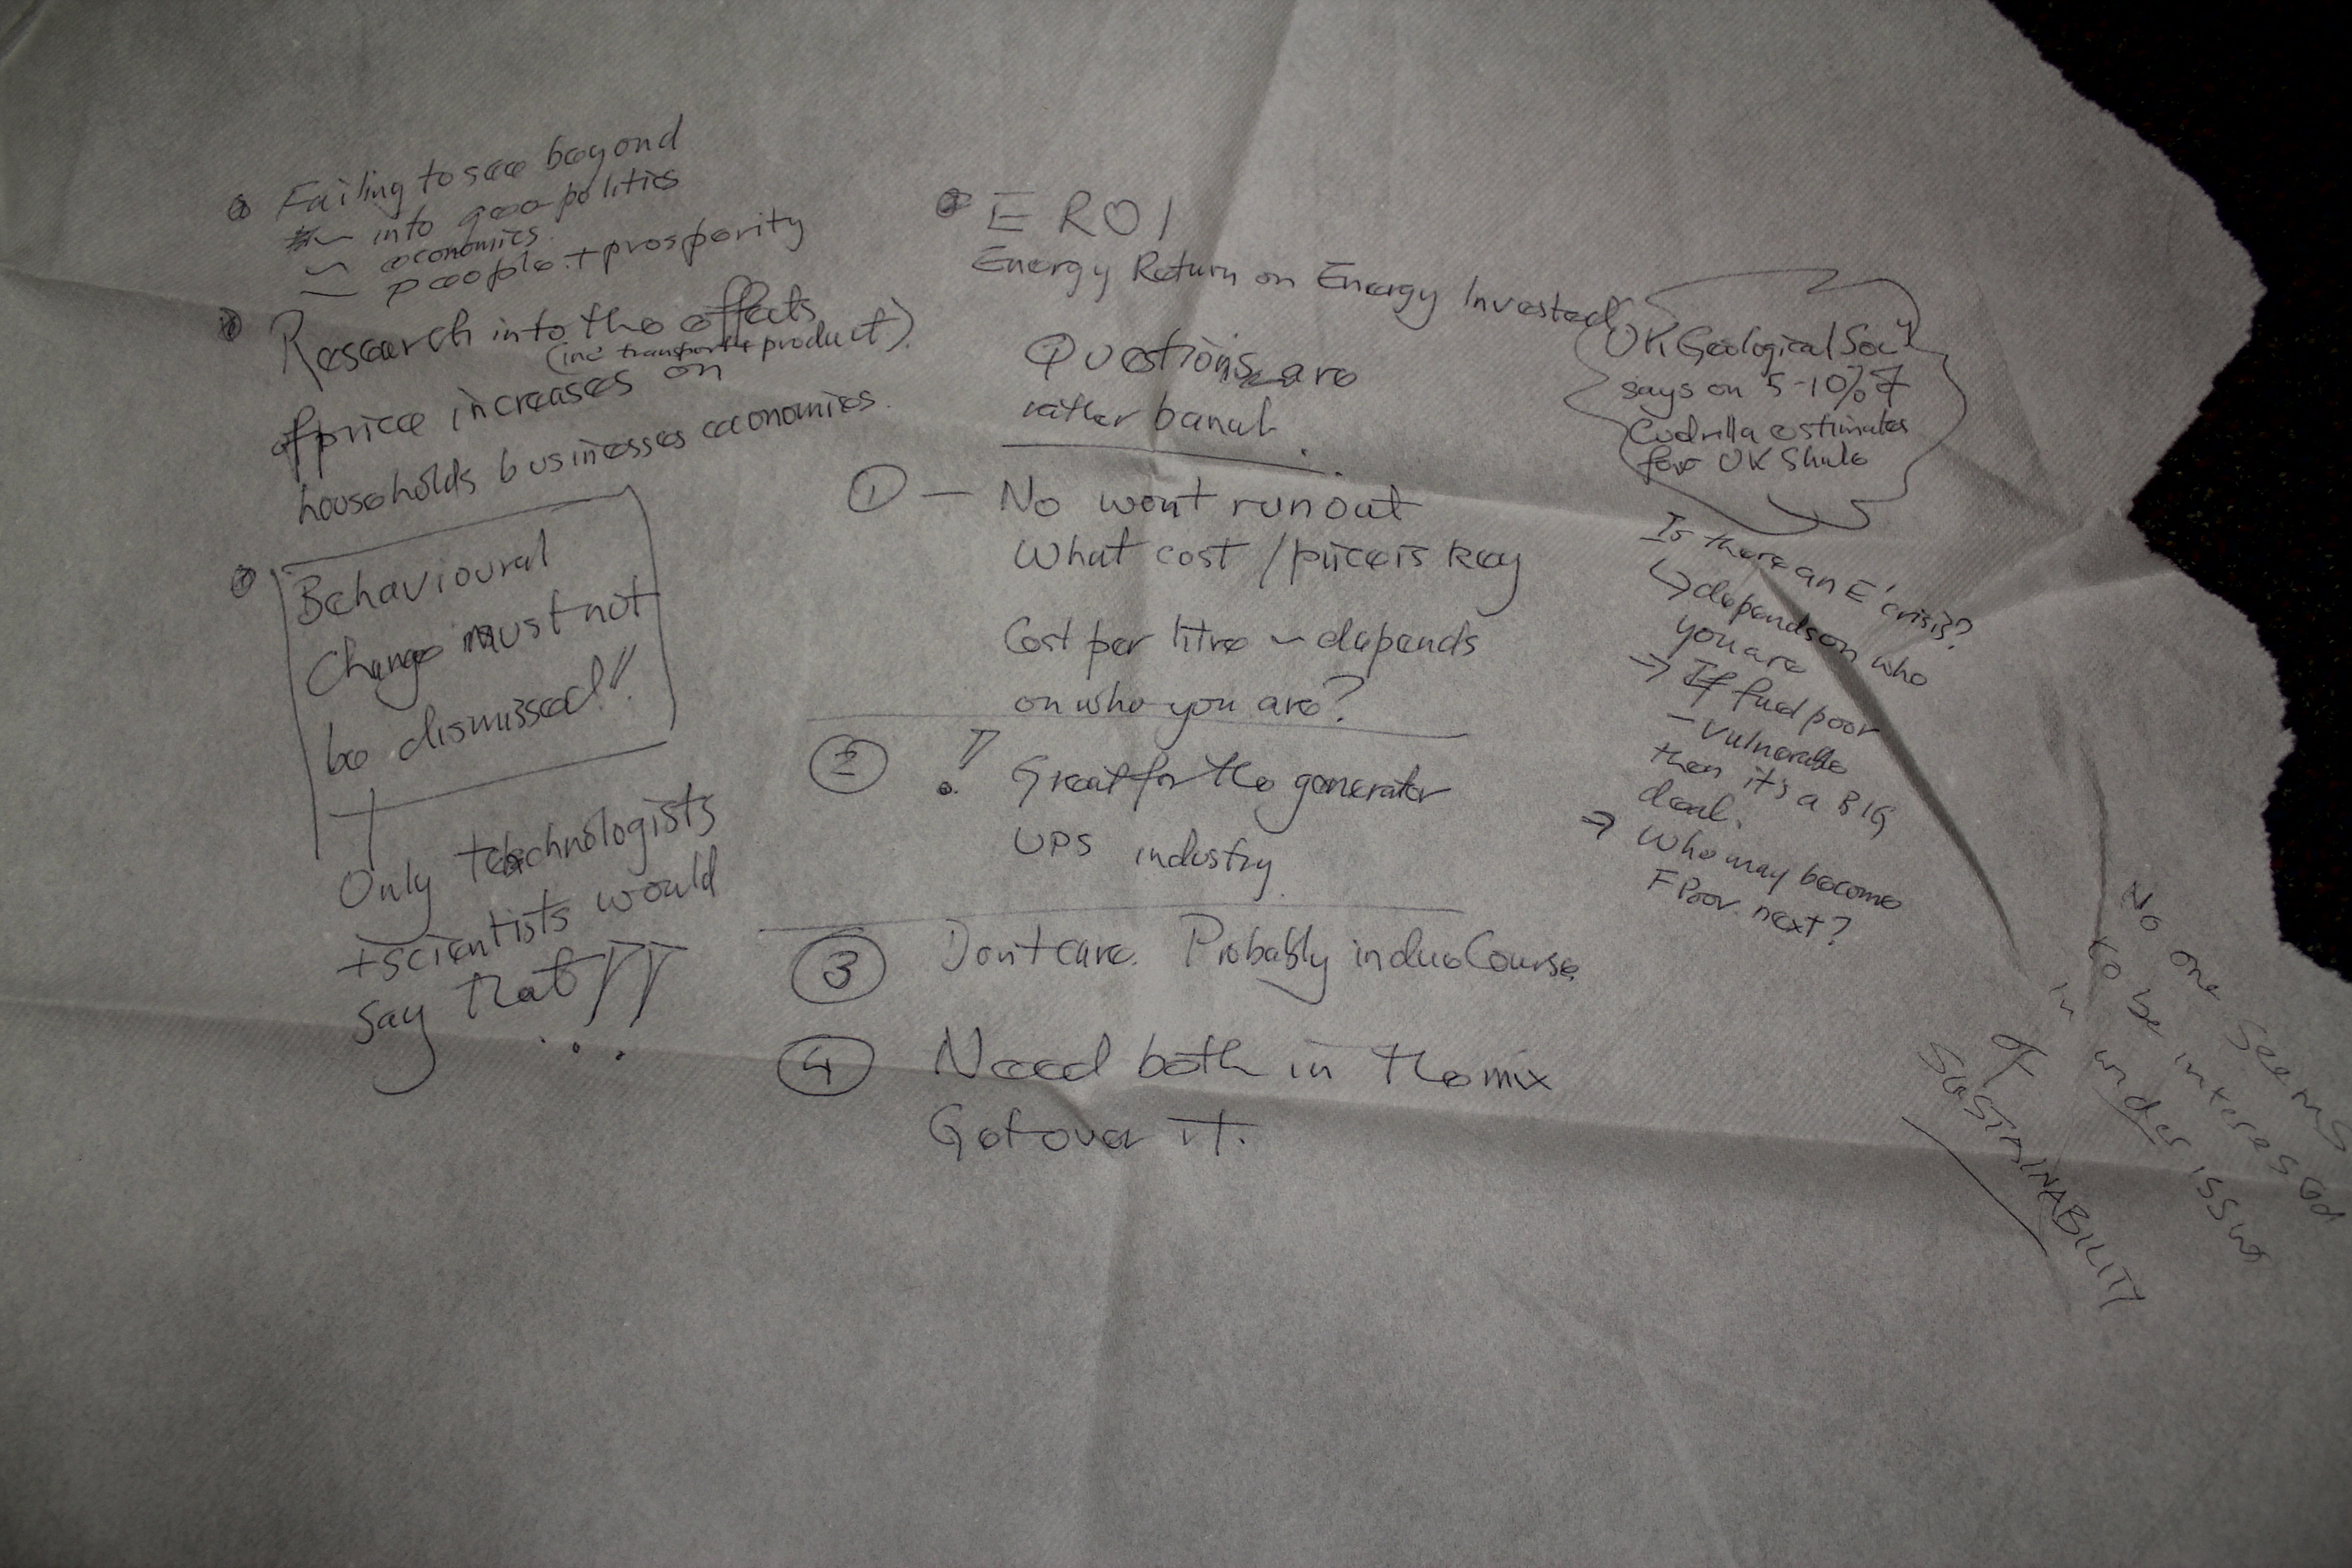 Failing to see beyond
~ into geo-politics
~ economics.
~ people + prosperity
Research into the effects
(inc transport + product)
of price increases on
households businesses economies.
Behavioural
Change must not
be dismissed!!
Only technologists
+ scientists would
say that!!
EROI
Energy Return on Energy Invested
Questions are
rather banal
① — No wont run out
What cost / price is key
Cost per litre ~ depends
on who you are?
② ! Great for the generator
UPS industry.
③ Dont care. Probably in due Course.
④ Need both in the mix
Get over it.
UK Geological Soc'y
says on 5-10% of
Cudrilla estimates
for UK Shale
Is there an E' crisis?
↳ depends on who
you are
→ If fuel poor
- vulnerable
then it's a BIG
deal.
→ Who may become
F Poor next?
No one seems
to be interested
in wider issue
of
SUSTAINABILITY